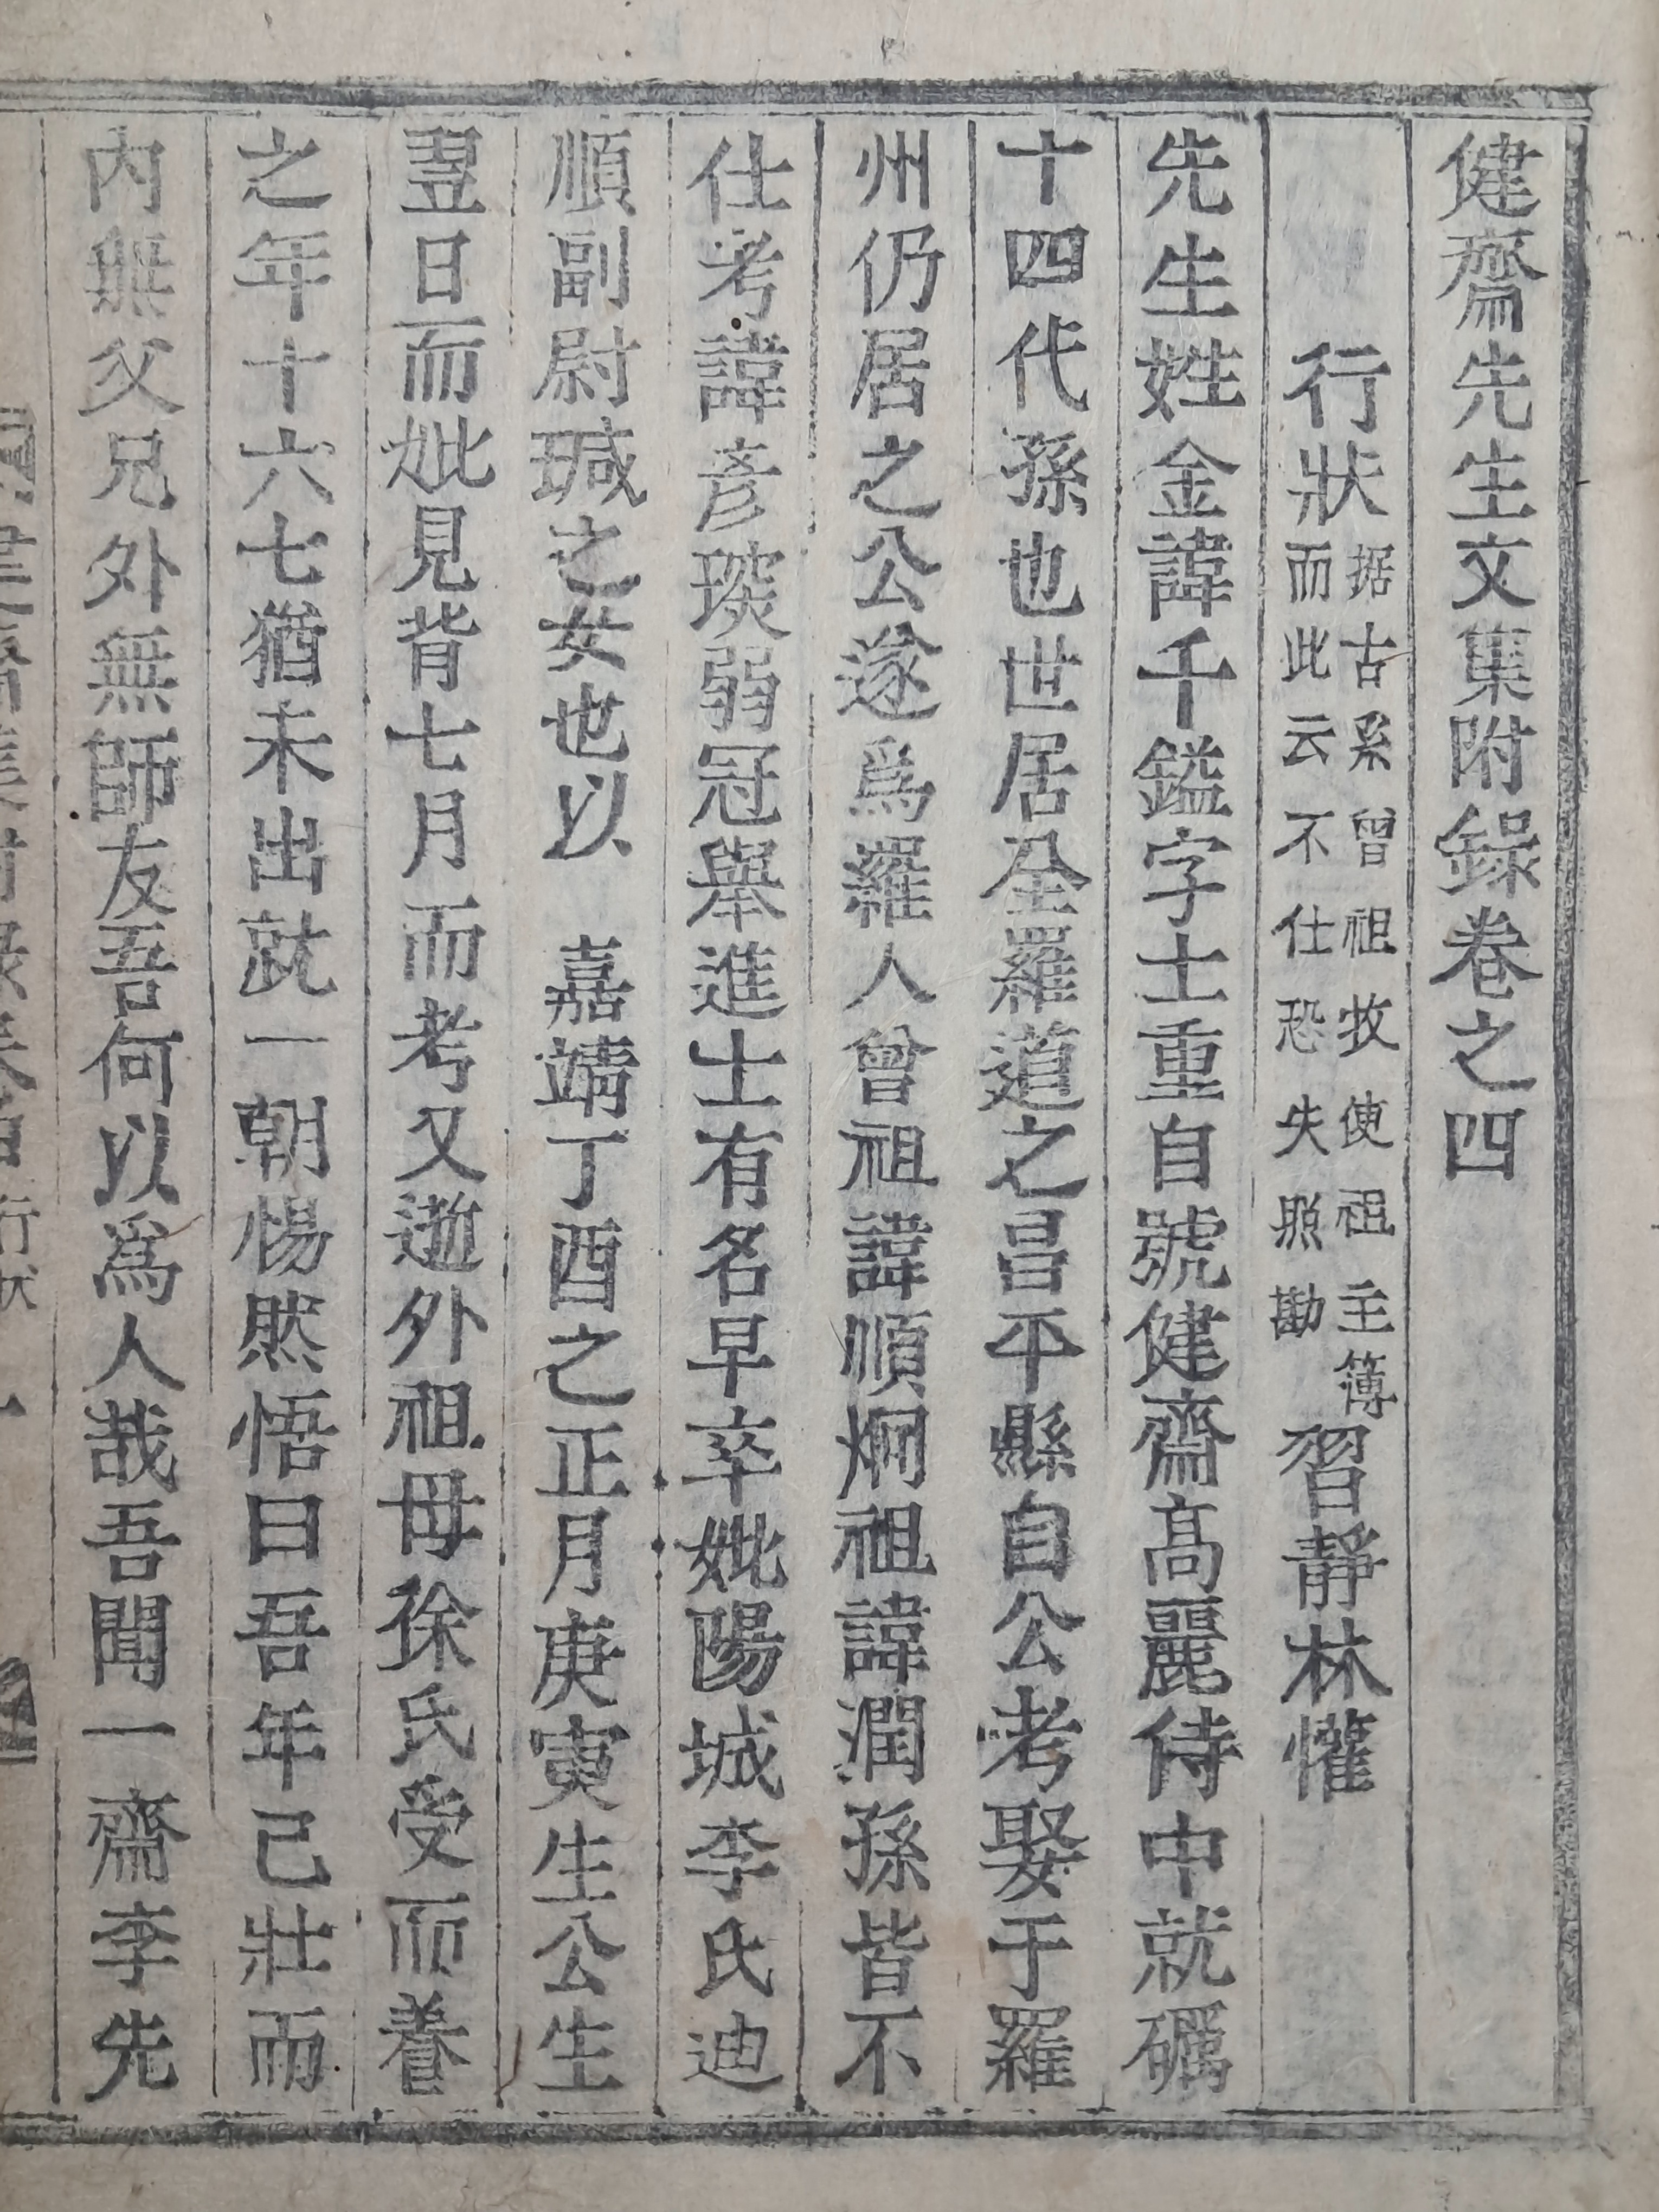 健齋先生文集附錄卷之四
行狀 据古系曾祖牧使祖主簿而此云不仕恐失照勘 習靜林懽
先生姓金諱千鎰字士重自號健齋高麗侍中就礪
十四代孫也世居全羅道之昌平縣自公考娶于羅
州仍居之公遂爲羅人曾祖諱順炯祖諱潤孫皆不
仕考諱彦琰弱冠舉進士有名早卒妣陽城李氏迪
順副尉瑊之女也以 嘉靖丁酉之正月庚寅生公生
翌日而妣見背七月而考又逝外祖母徐氏受而養
之年十六七猶未出就一朝惕然悟曰吾年已壯而
內無父兄外無師友吾何以爲人哉吾聞一齋李先